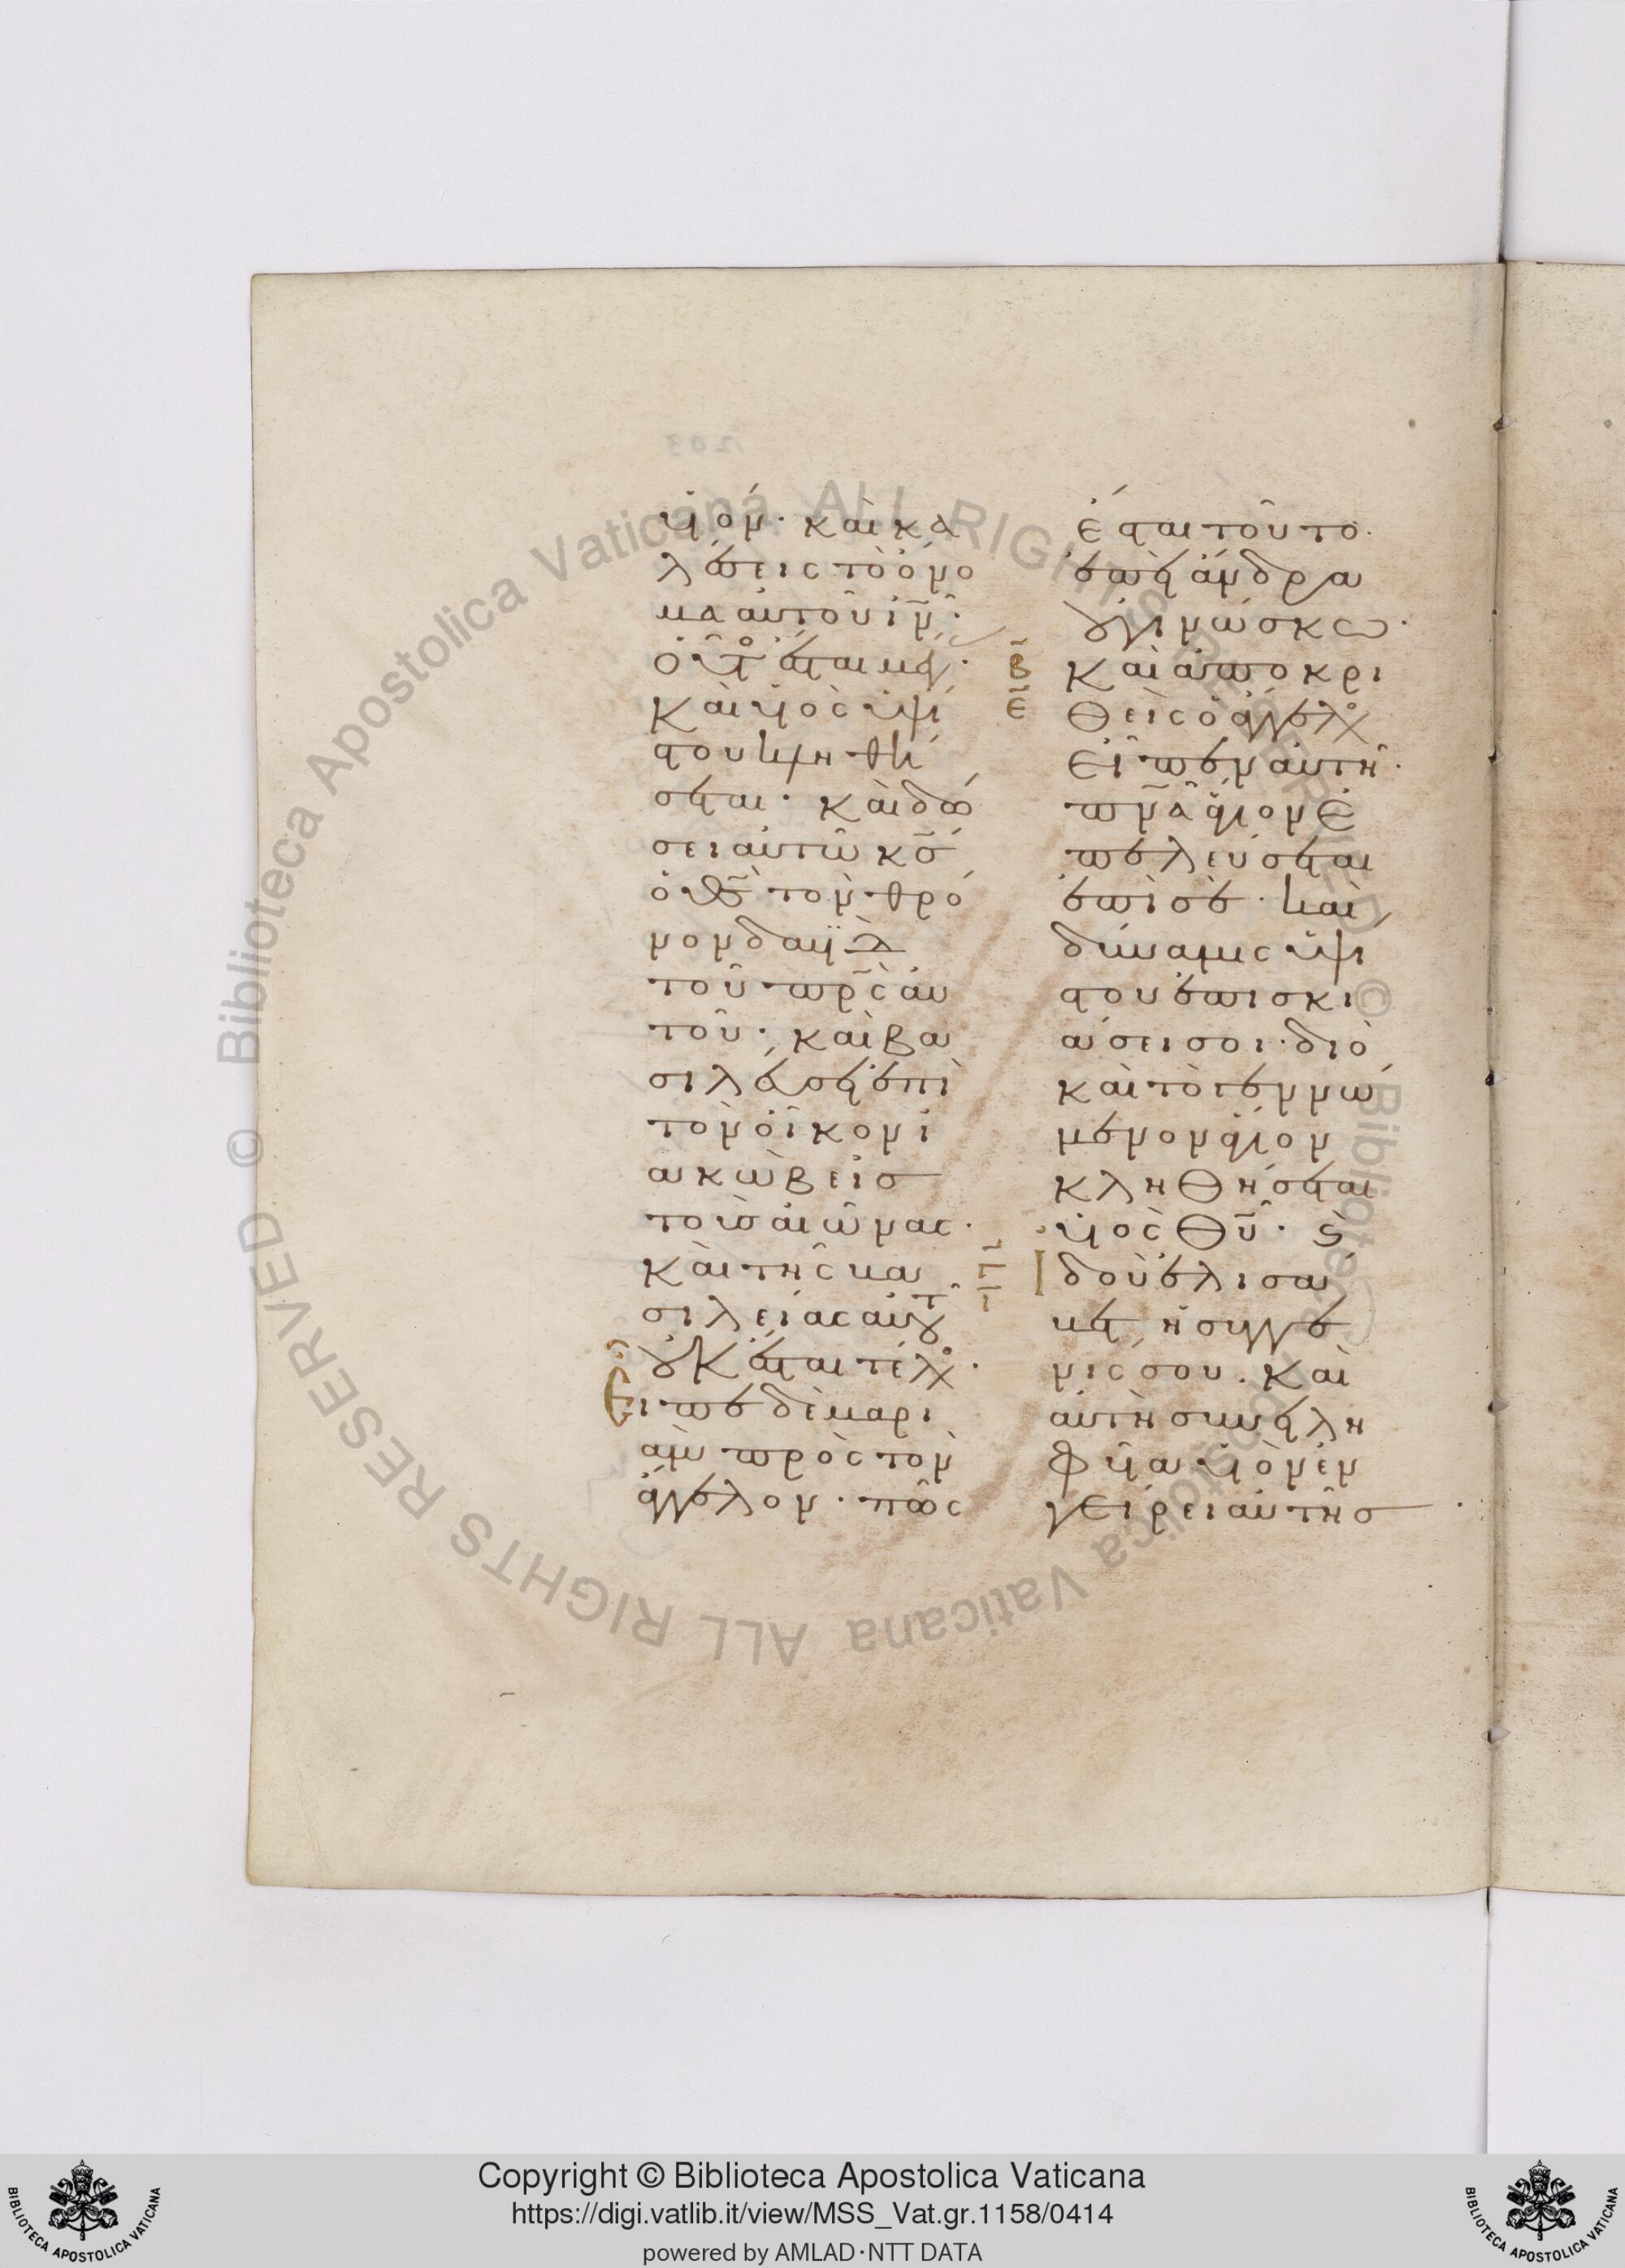 υἱόν· καὶ κα
λέσεις τὸ ὄνο
μα αὐτοῦ ἰν̄·
οὗτος ἔσται μέγ·
καὶ υἱὸς ὑψί
στου κληθή
σεται· καὶ δώ
σει αὐτῶ κ̄σ
ὁ θ̄σ τὸν θρό
νον δαυϊδ
τοῦ πρ̄ς αὐ
τοῦ· καὶ βα
σιλεύσει ἐπὶ
τὸν οἶκον ἰ
ακὼβ εἰσ
τοὺσ αἰῶνας·
καὶ τῆς βα
σιλείας αὐτοῦ
οὐκ ἔσται τέλος·
Εἶπε δὲ μαρι
ὰμ πρὸς τὸν
ἄγγελον· πῶς
ἔσται τοῦτο·
ἐπεὶ ἄνδρα
οὐ γινώσκω·
β̄
ε̄
Καὶ ἀποκρι
θεὶς ὁ ἄγγελος
εἶπεν αὐτῆ·
πν̄α ἅγιον ἐ
πελεύσεται
ἐπὶ σέ· καὶ
δύναμις ὑψί
στου ἐπισκι
άσει σοι· διὸ
καὶ τὸ γεννώ
μενον ἅγιον
κληθήσεται
υἱὸς θῡ· ϛ
ἰδοὺ ἐλισά
βετ ἡ συγγε
νίς σου· καὶ
αὐτὴ συνειλη
φυῖα υἱὸν ἐν
γείρει αὐτῆσ·
Copyright © Biblioteca Apostolica Vaticana
https://digi.vatlib.it/view/MSS_Vat.gr.1158/0414
powered by AMLAD·NTT DATA